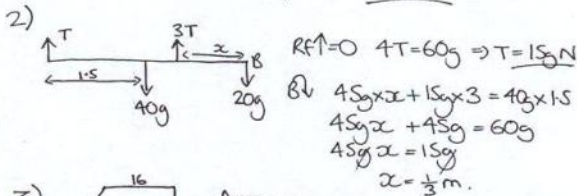 2)
T
3T
x
B
1.5
40g
20g
Rf↑=0 4T=60g ⇒ T=15gN
B↷ 45g×x + 15g×3 = 40g×1.5
45gx + 45g = 60g
45gx = 15g
x = 1/3 m.
3)
16